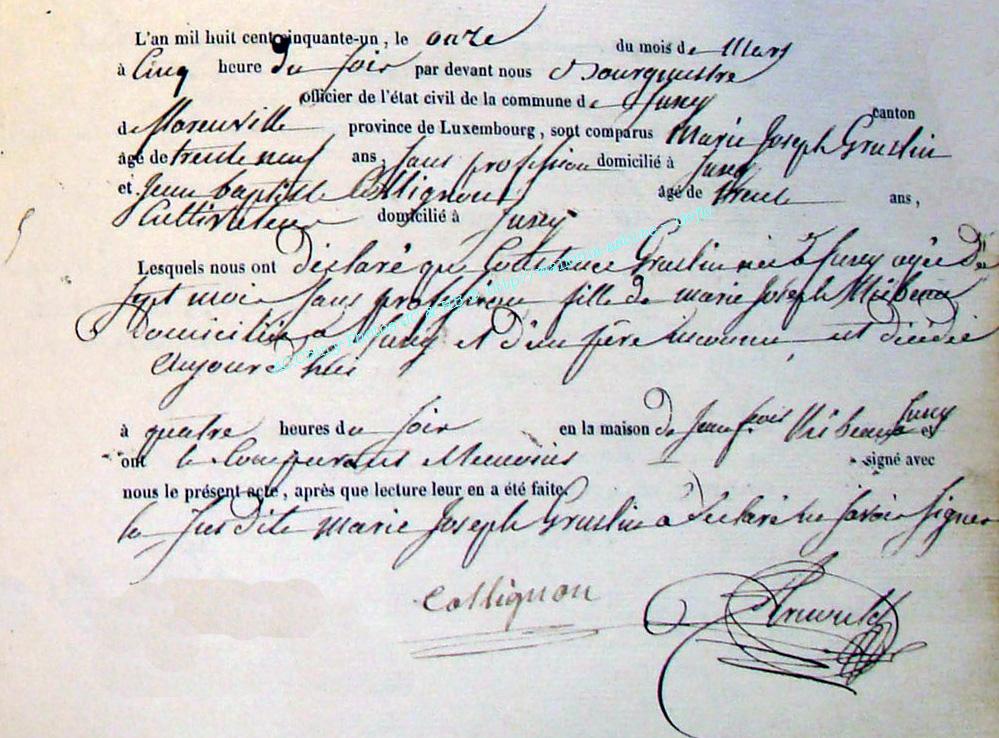 L'an mil huit cent cinquante-un, le onze du mois de Mars
à Cinq heure du soir par devant nous Bourgmestre
officier de l'état civil de la commune de Juzey canton
de province de Luxembourg, sont comparus Marie Joseph Gruslin
âgé de trente neuf ans, sans profession domicilié à Juzey
et Jean baptiste Collignon âgé de trente ans,
Cultivateur domicilié à Juzey
Lesquels nous ont déclaré que Constance Gruslin née à Juzey agée de
sept mois sans profession fille de marie Joseph
domiciliée à Juzey et d'un père inconnu est décédée
aujourd'hui
à quatre heures du soir en la maison de Jean fcois Juzey et
ont le Comparants signé avec
nous le présent acte, après que lecture leur en a été faite.
la susdite marie Joseph Gruslin à déclaré ne savoir signer
Collignon